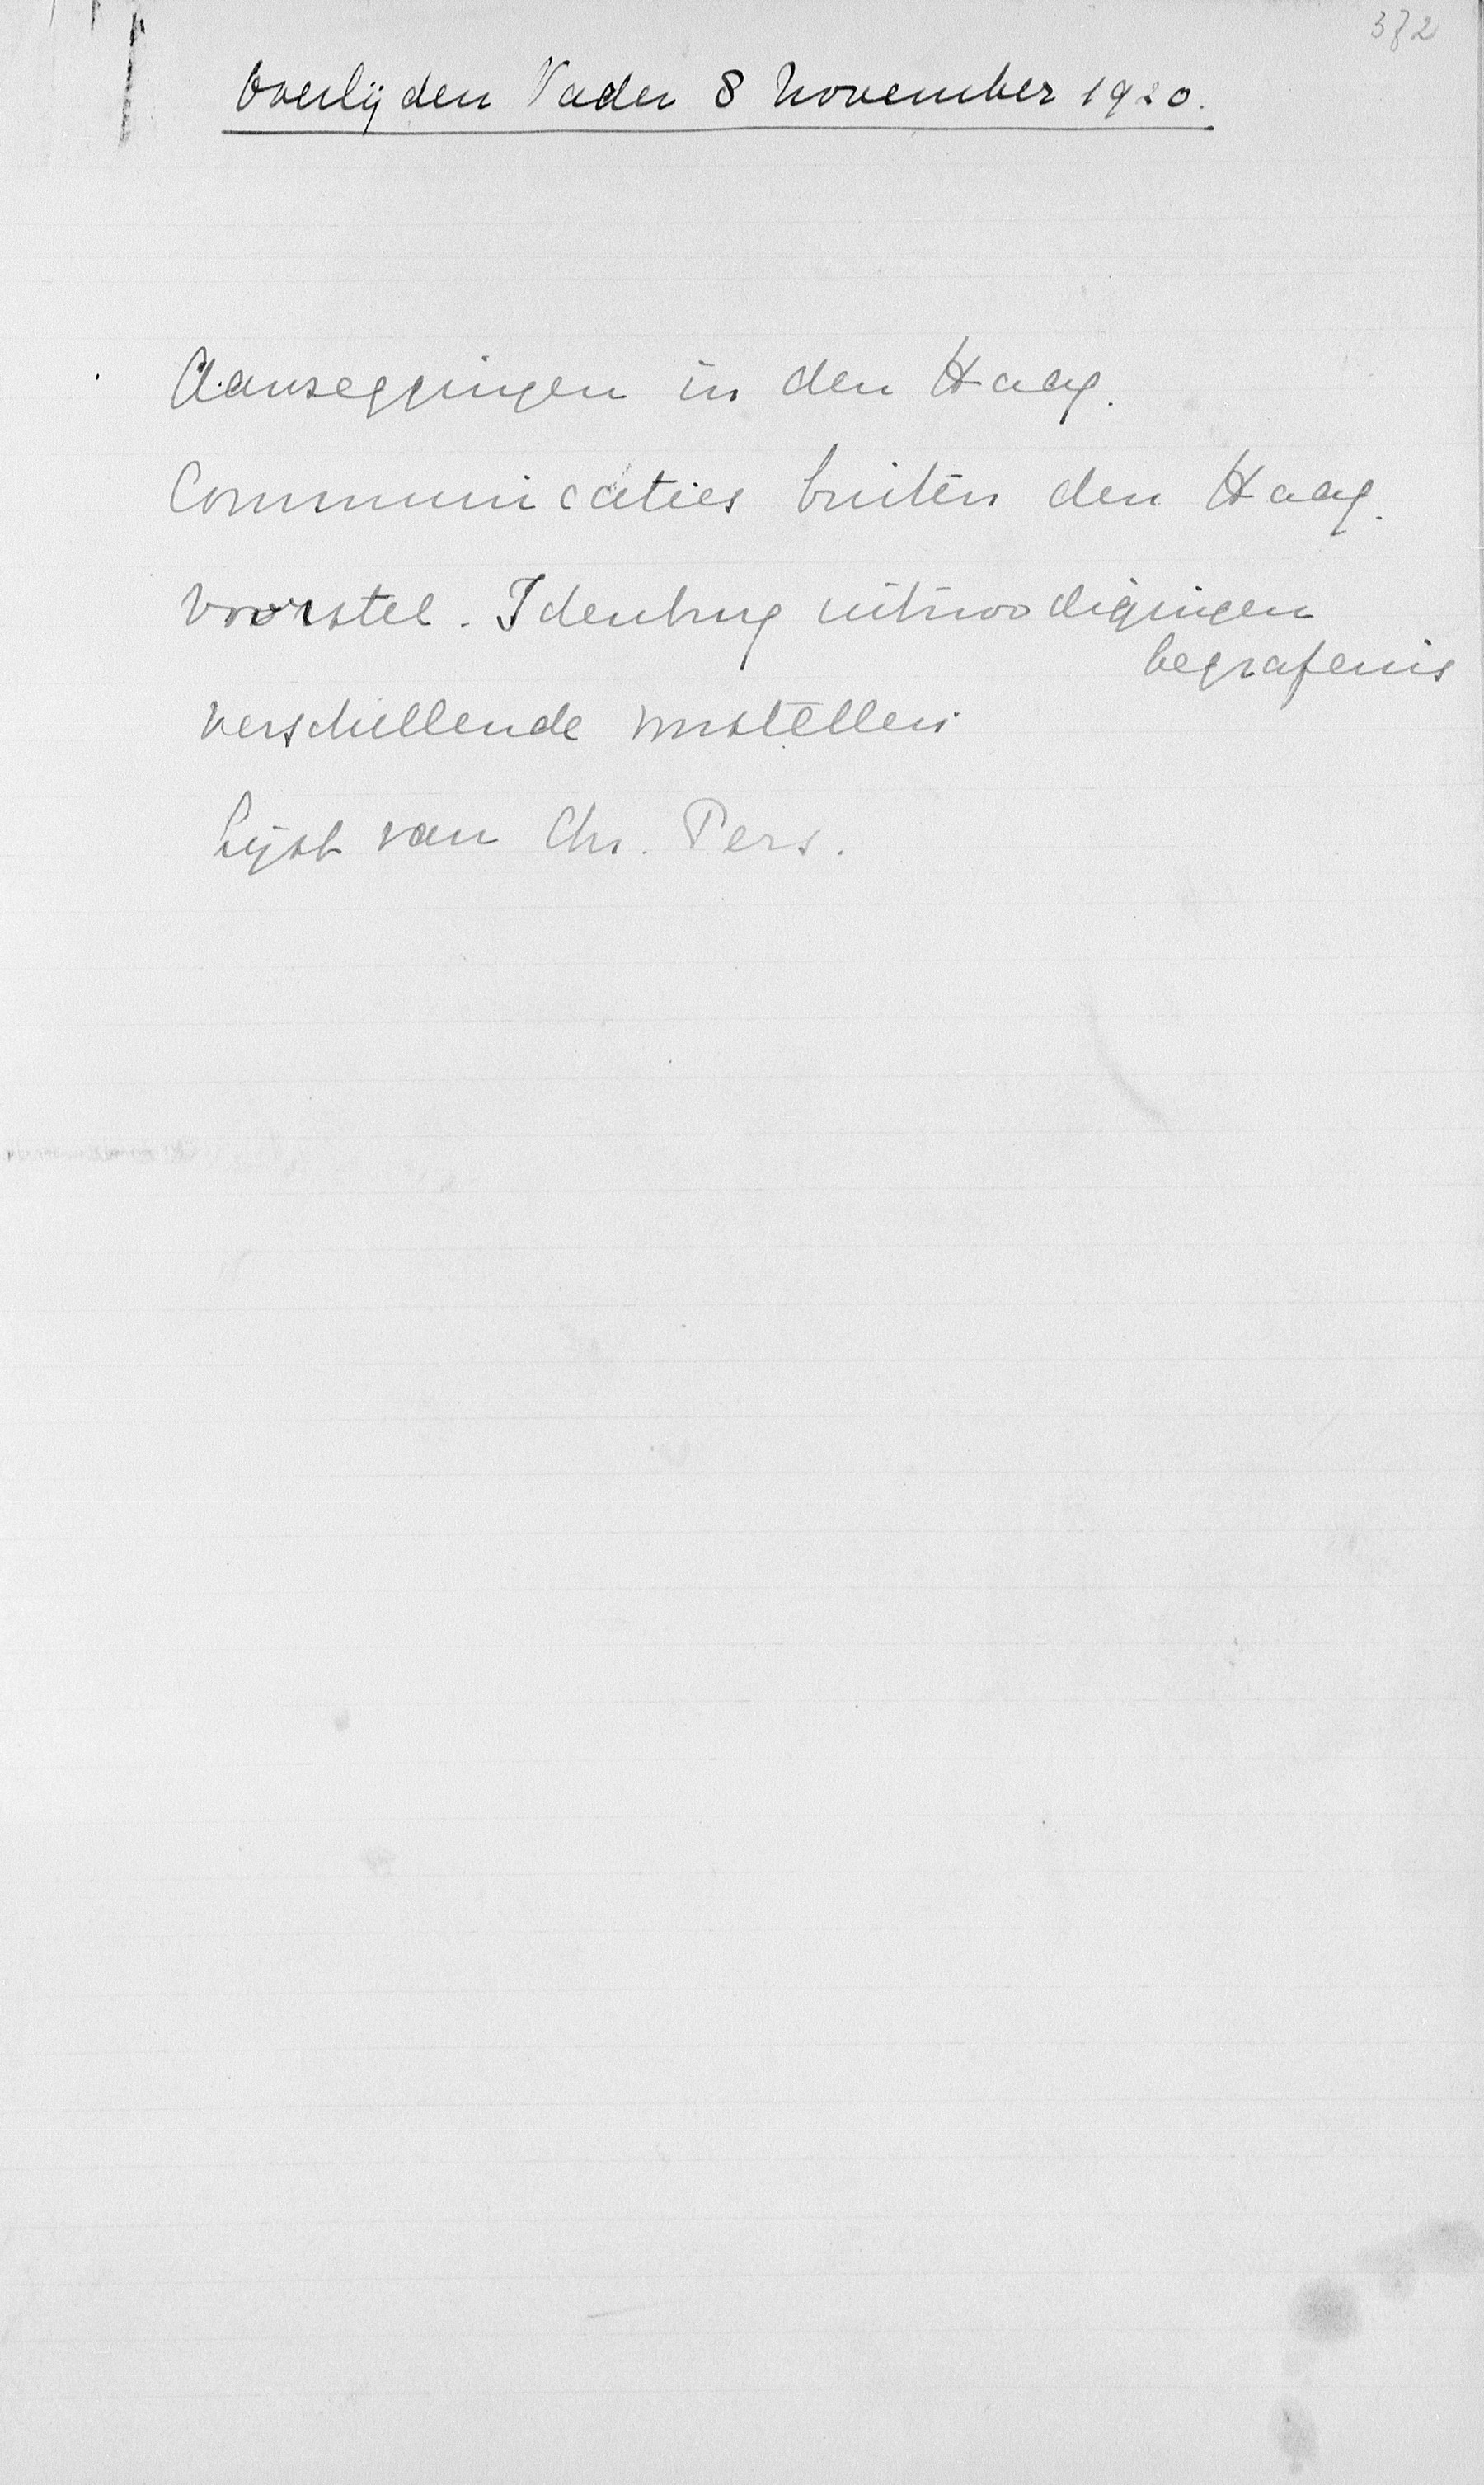 372
Overlijden Vader 8 November 1920.
Aanzeggingen in den Haag.
Communicaties buiten den Haag.
voorstel. Idenburg uitnoodigingen
begrafenis
verschillende voorstellen
Lijst van Chr. Pers.